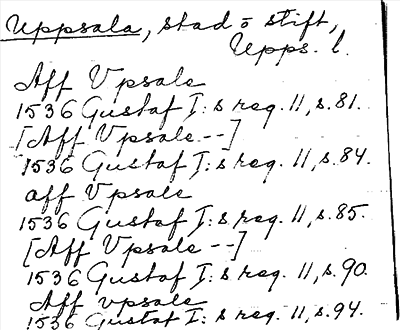 Uppsala, stad o stift,
Upps. l.
Aff Vpsale
1536 Gustaf I:s reg. 11, s. 81.
[Aff Vpsale --]
1536 Gustaf I:s reg. 11, s. 84.
aff Vpsale
1536 Gustaf I:s reg. 11, s. 85.
[Aff Vpsale --]
1536 Gustaf I:s reg. 11, s. 90.
Aff vpsale
1536 Gustaf I:s reg. 11, s. 94.